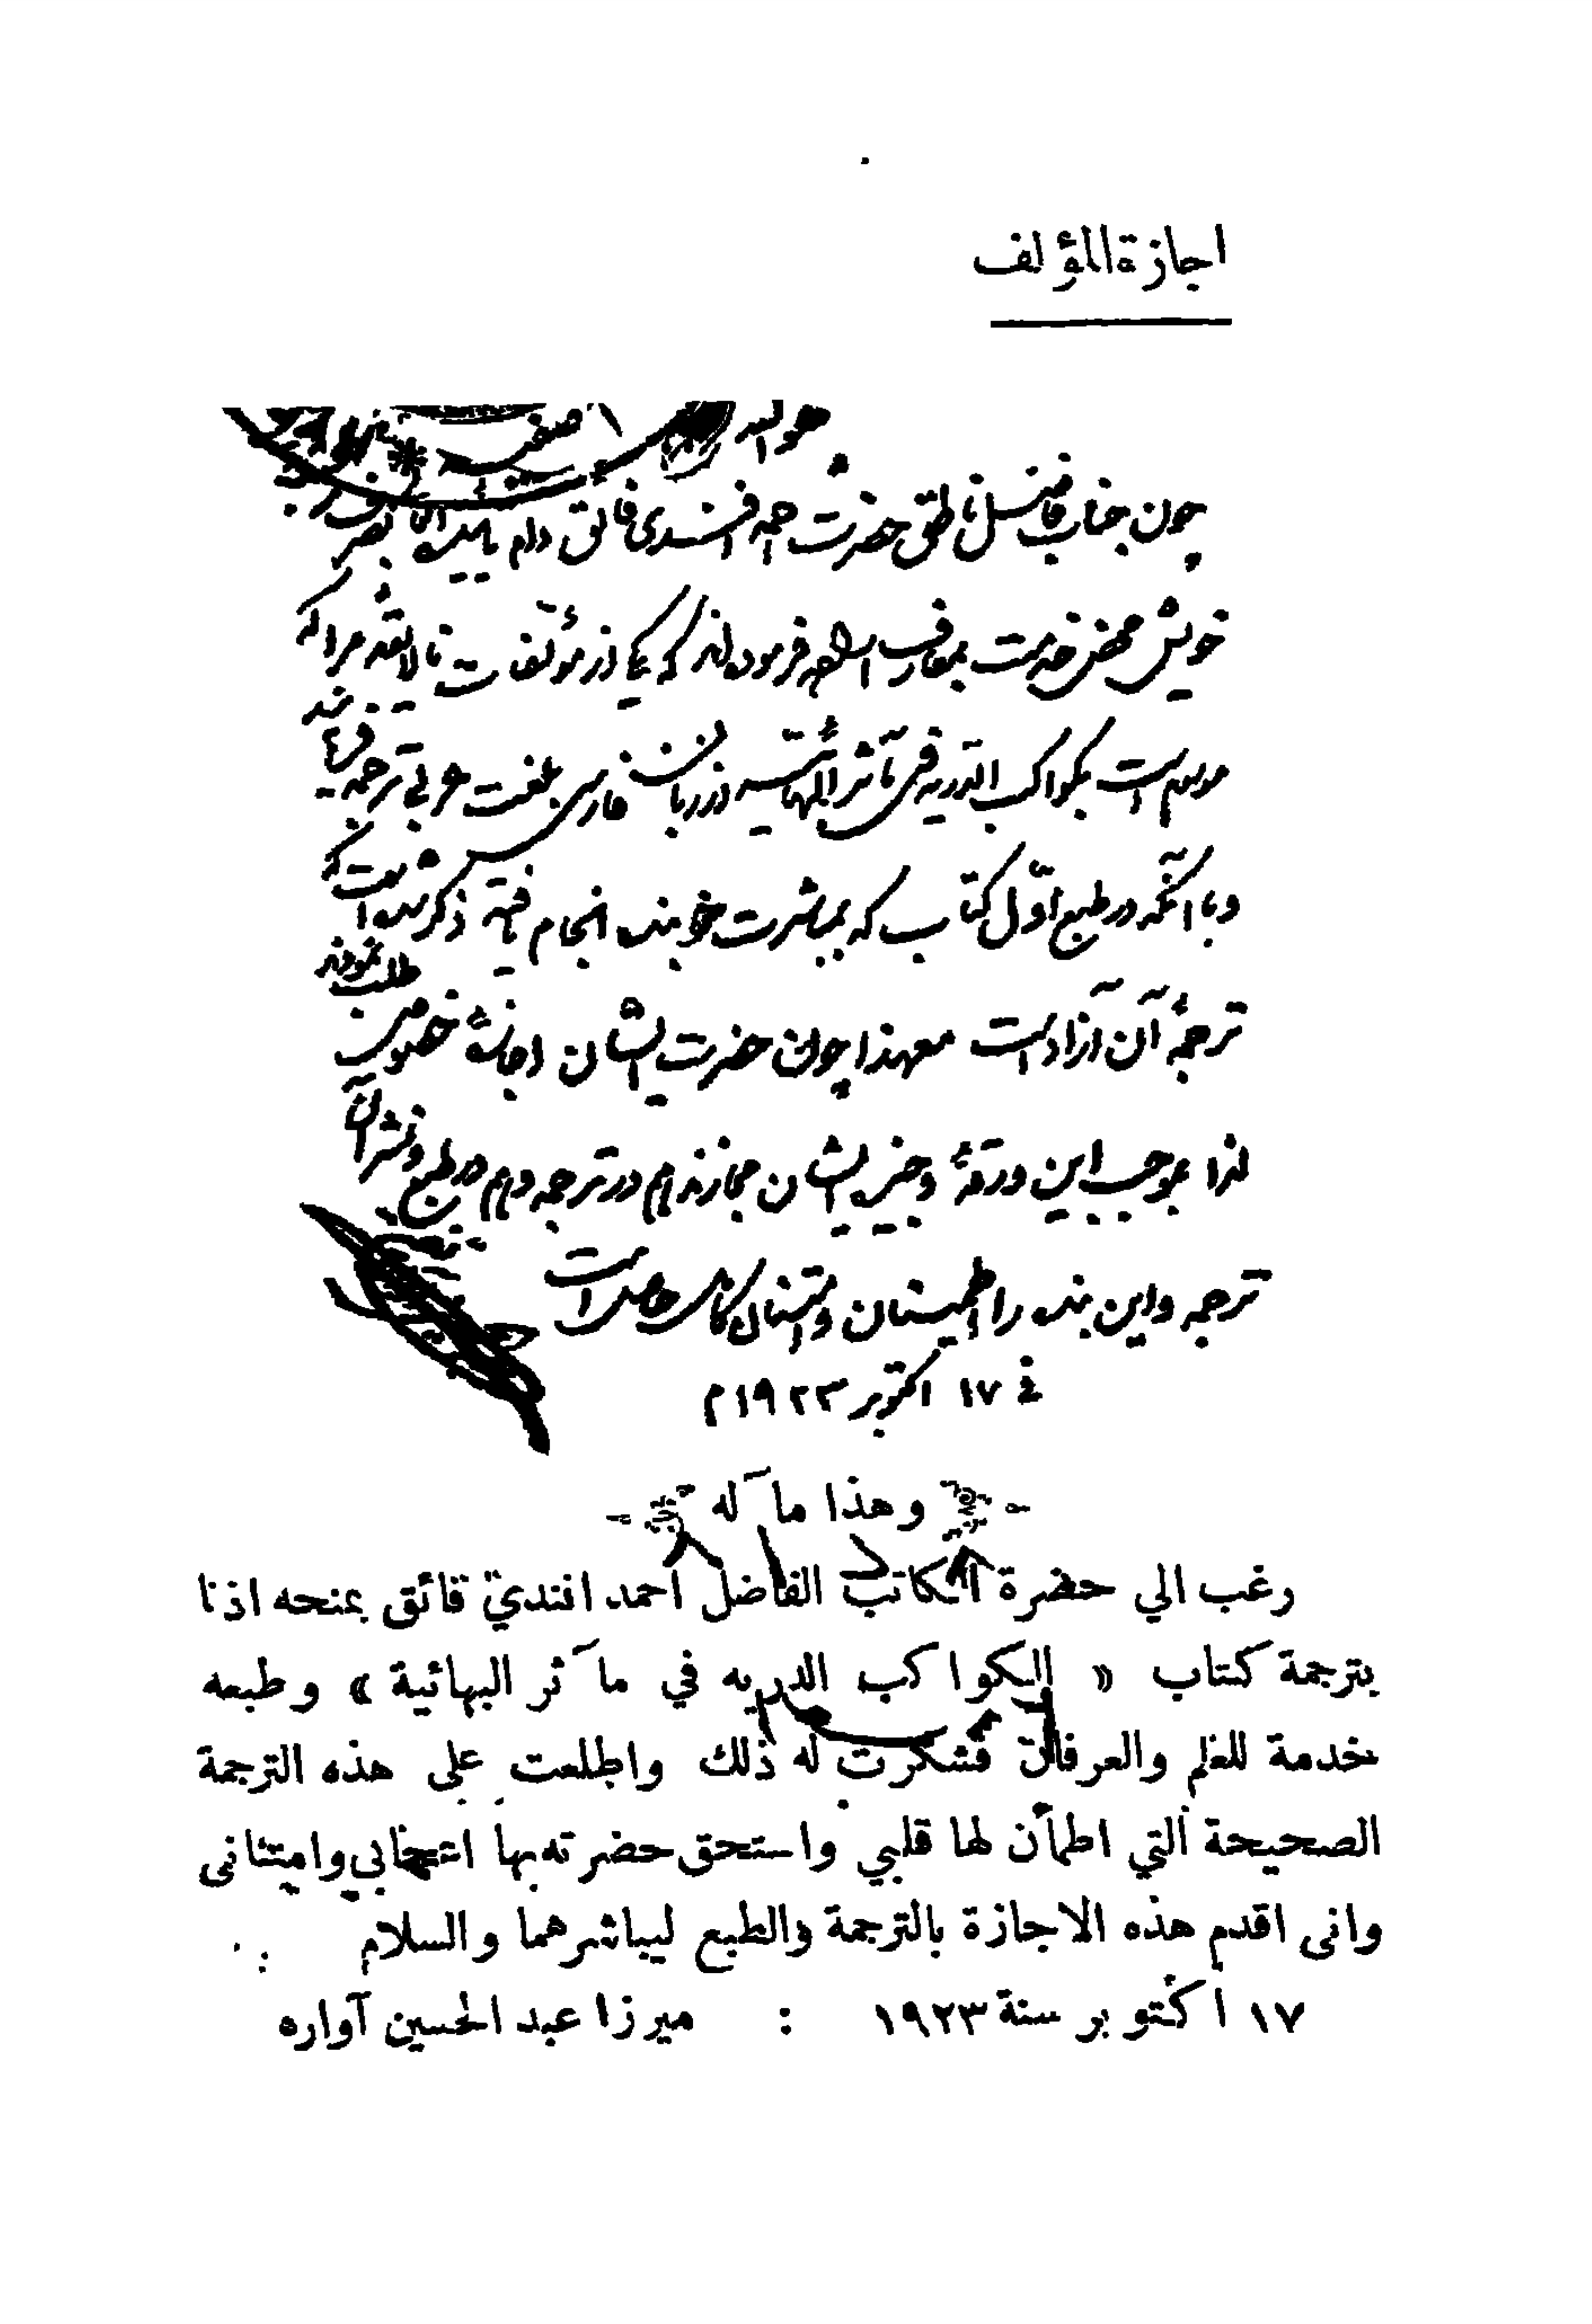 اجازة المؤلف
هو الله
چون جناب فاضل ناطق حضرت احمد افندی فائق دام
خویش محض خدمت بمعارف فرموده‌اند که یکی از مؤلفات نالایقه مرا که
موسوم است بکواکب الدریه فی مآثر البهائیه از زبان فارسی بلغت عربی ترجمه فرمایند
و با آنکه در طبع اوّل کتاب که بمباشرت خود بنده انجام یافته ذکر شده است که
ترجمهٔ آن آزاد است معهذا چون حضرت ایشان اجازهٔ خصوصی طلب نمودند
لذا بموجب این ورقهٔ وجیزه ایشان مجازند هم در ترجمه و هم در طبع و نشر آن
ترجمه و این بنده را اطمینان و امتنان کامل حاصل است
في ١٧ اکتوبر ١٩٢٣ م
وهذا مآله
رغب الي حضرة الكاتب الفاضل احمد افندي فائق بمنحه اذنا
بترجمة كتاب « الكواكب الدريه في مآثر البهائية » وطبعه
خدمة للعلم والعرفان فشكرت له ذلك واطلعت على هذه الترجمة
الصحيحة التي اطمأن لها قلبي واستحق حضرته بها وامتنانى
وانى اقدم هذه الاجازة بالترجمة والطبع ليباشرهما والسلام
١٧ اكتوبر سنة ١٩٢٣ : ميرزا عبد الحسين آواره